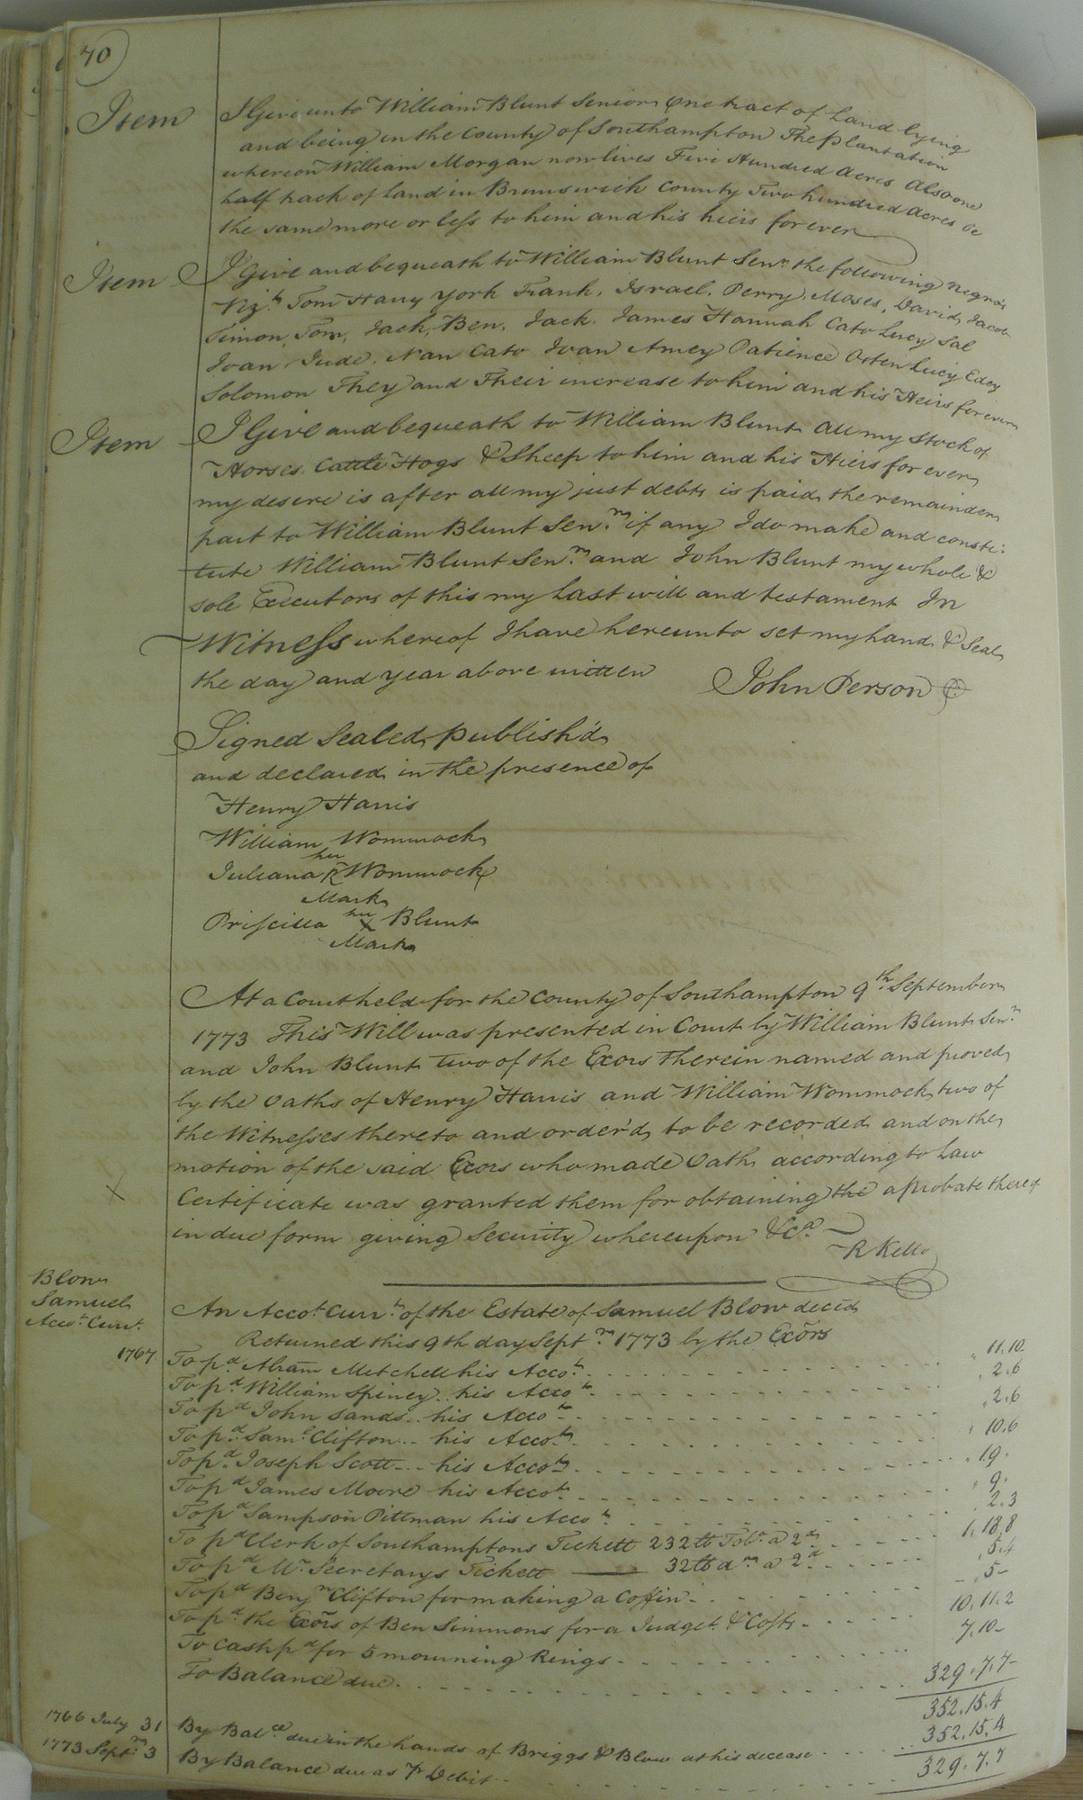 70
Item I Give unto William Blunt Senior One tract of Land lying
and being in the County of Southampton The Plantation
whereon William Morgan now lives Five Hundred Acres Also one
half track of land in Brunswick County Two hundred Acres be
the same more or less to him and his heirs forever
Item I Give and bequeath to William Blunt Senr. the following negros
Vizt. Tom Harry York Frank, Israel, Perry, Moses, David, Jacob
Simon, Tom, Jack, Ben, Jack, James Hannah Cato Lucy Sal
Joan Jude, Nan Cato Joan Amey Patience Osten Lucy Edey
Solomon They and Their increase to him and his Heirs forever
Item I Give and bequeath to William Blunt All my Stock of
Horses Cattle Hogs & Sheep to him and his Heirs for ever
my desire is after all my just debts is paid the remainder
part to William Blunt Senr. if any I do make and consti:
tute William Blunt Senr. and John Blunt my whole &
sole Executors of this my Last will and testament In
Witness whereof I have hereunto set my hand & Seal
the day and year above written John Person
Signed Sealed publish'd
and declared in the presence of
Henry Harris
William Wommock
her
Juliana R Wommock
Mark
Priscilla her X Blunt
Mark
At a Court held for the County of Southampton 9th September
1773 This Will was presented in Court by William Blunt Senr.
and John Blunt two of the Exors therein named and proved
by the Oaths of Henry Harris and William Wommock two of
the Witnesses thereto and order'd to be recorded and on the
motion of the said Exors who made Oath according to Law
X Certificate was granted them for obtaining the a probate thereof
in due form giving Security whereupon &ca.
R Kello
Blow
Samuel
Accot. Currt.
An Accot. Currt. of the Estate of Samuel Blow decd
Returned this 9th day Septr. 1773 by the Exors
1767 To pd. Abram Metchell his Accot. 11.10
To pd. William Spiney his Accot. 2.6
To pd. John Sands his Accot. 2.6
To pd. Saml. Clifton his Accot. 10.6
To pd. Joseph Scott his Accot. 19.
To pd. James Moore his Accot. 9.
To pd. Sampson Pittman his Accot. 2.3
To pd. Clerk of Southamptons Tickett 232 lb Tobo. a 2d. 1.18.8
To pd. Mr. Secretarys Tickett 32 lb do. a 2d. 5.4
To pd. Benjn. Clifton for making a Coffin 5-
To pd. the Exors of Ben Simmons for a Judgt. & Costs 10.11.2
To Cash pd. for 5 mourning Rings 7.10-
To Balance due 329.7.7
352.15.4
1766 July 31 By Balce. due in the hands of Briggs & Blow at his decease 352.15.4
1773 Septr. 3 By Balance due as pr Debit 329.7.7